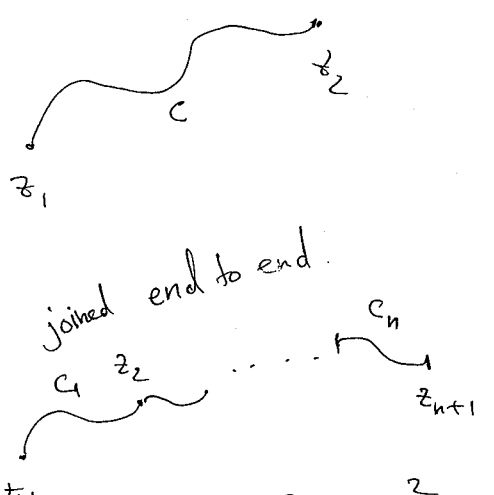 z₂
C
z₁
joined end to end.
Cₙ
C₁ z₂
zₙ₊₁
2